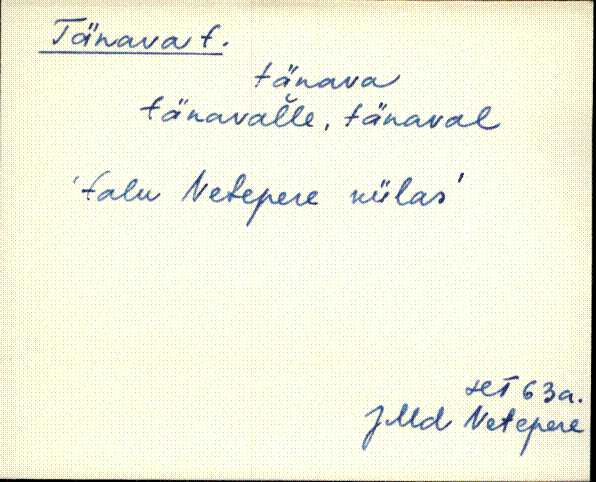 Tänava t.
tänava
tänavalle, tänaval
'talu Netepere külas'
63a.
JMd Netepere